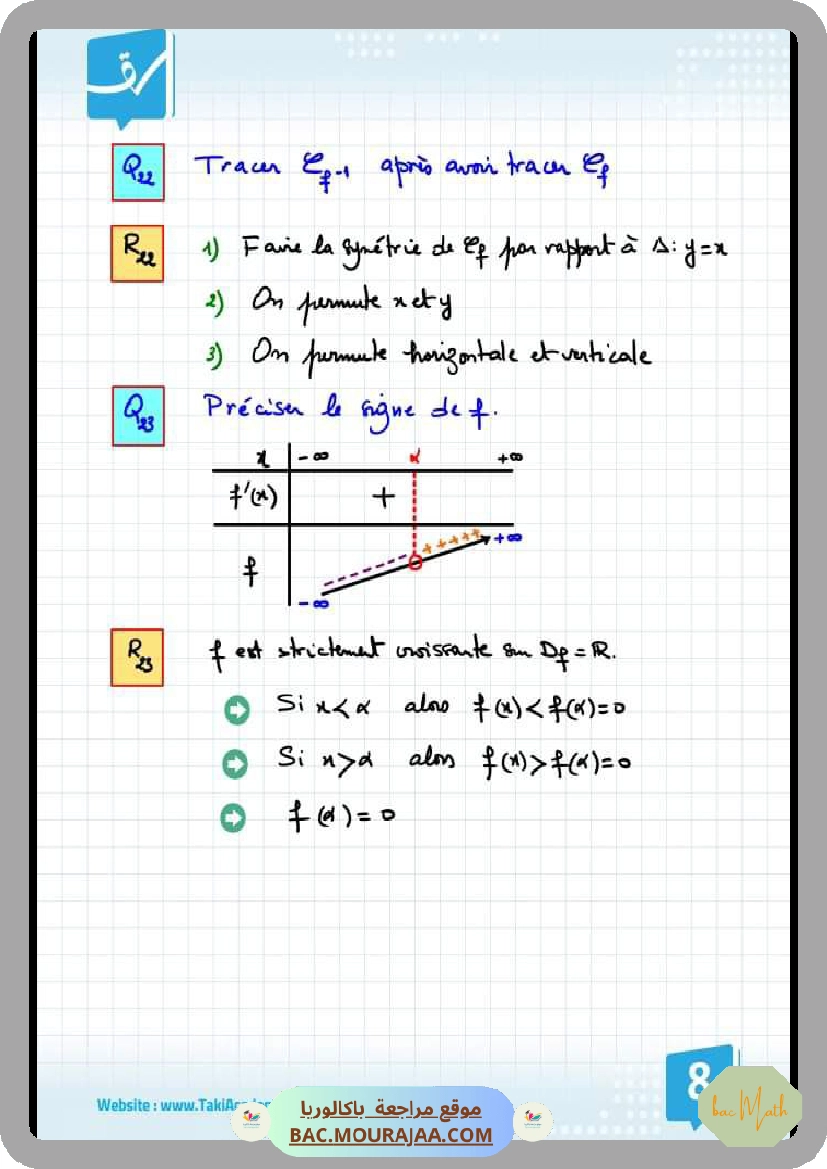 Q22 Tracer 𝒞f-1 après avoir tracer 𝒞f
R22 1) Faire la symétrie de 𝒞f par rapport à Δ: y=x
2) On permute x et y
3) On permute horizontale et verticale
Q23 Préciser le signe de f.
x -∞ α +∞
f'(x) +
+ + + + + +∞
f
-∞
R23 f est strictement croissante sur Df = ℝ.
Si x<α alors f(x)<f(α)=0
Si x>α alors f(x)>f(α)=0
f(α)=0
8
bac Math
Website :
موقع مراجعة باكالوريا
BAC.MOURAJAA.COM